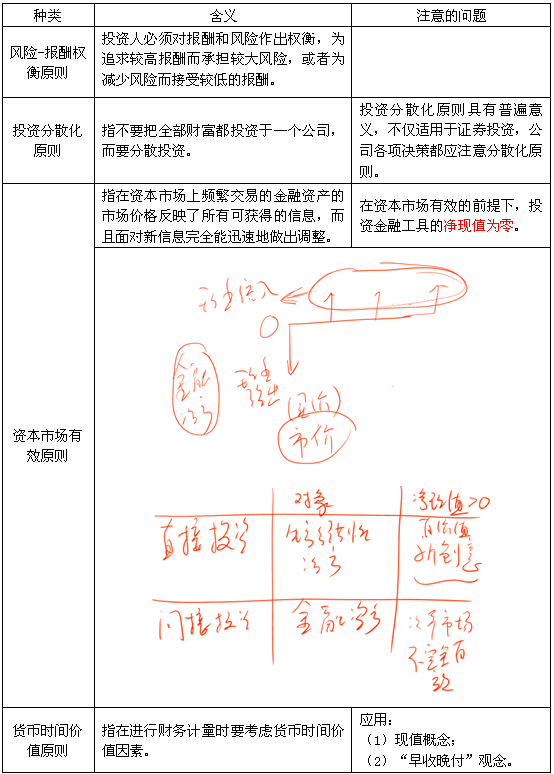 种类
含义
注意的问题
风险-报酬权
衡原则
投资人必须对报酬和风险作出权衡，为
追求较高报酬而承担较大风险，或者为
减少风险而接受较低的报酬。
投资分散化
原则
指不要把全部财富都投资于一个公司，
而要分散投资。
投资分散化原则具有普遍意
义，不仅适用于证券投资，公
司各项决策都应注意分散化原
则。
资本市场有
效原则
指在资本市场上频繁交易的金融资产的
市场价格反映了所有可获得的信息，而
且面对新信息完全能迅速地做出调整。
在资本市场有效的前提下，投
资金融工具的净现值为零。
现金流入
0
金融
资产
现金
流出
市价
对象
净现值>0
直接投资
有价值
新创意
间接投资
金融资产
资本市场
不完全有
效
货币时间价
值原则
指在进行财务计量时要考虑货币时间价
值因素。
应用：
（1）现值概念；
（2）“早收晚付”观念。